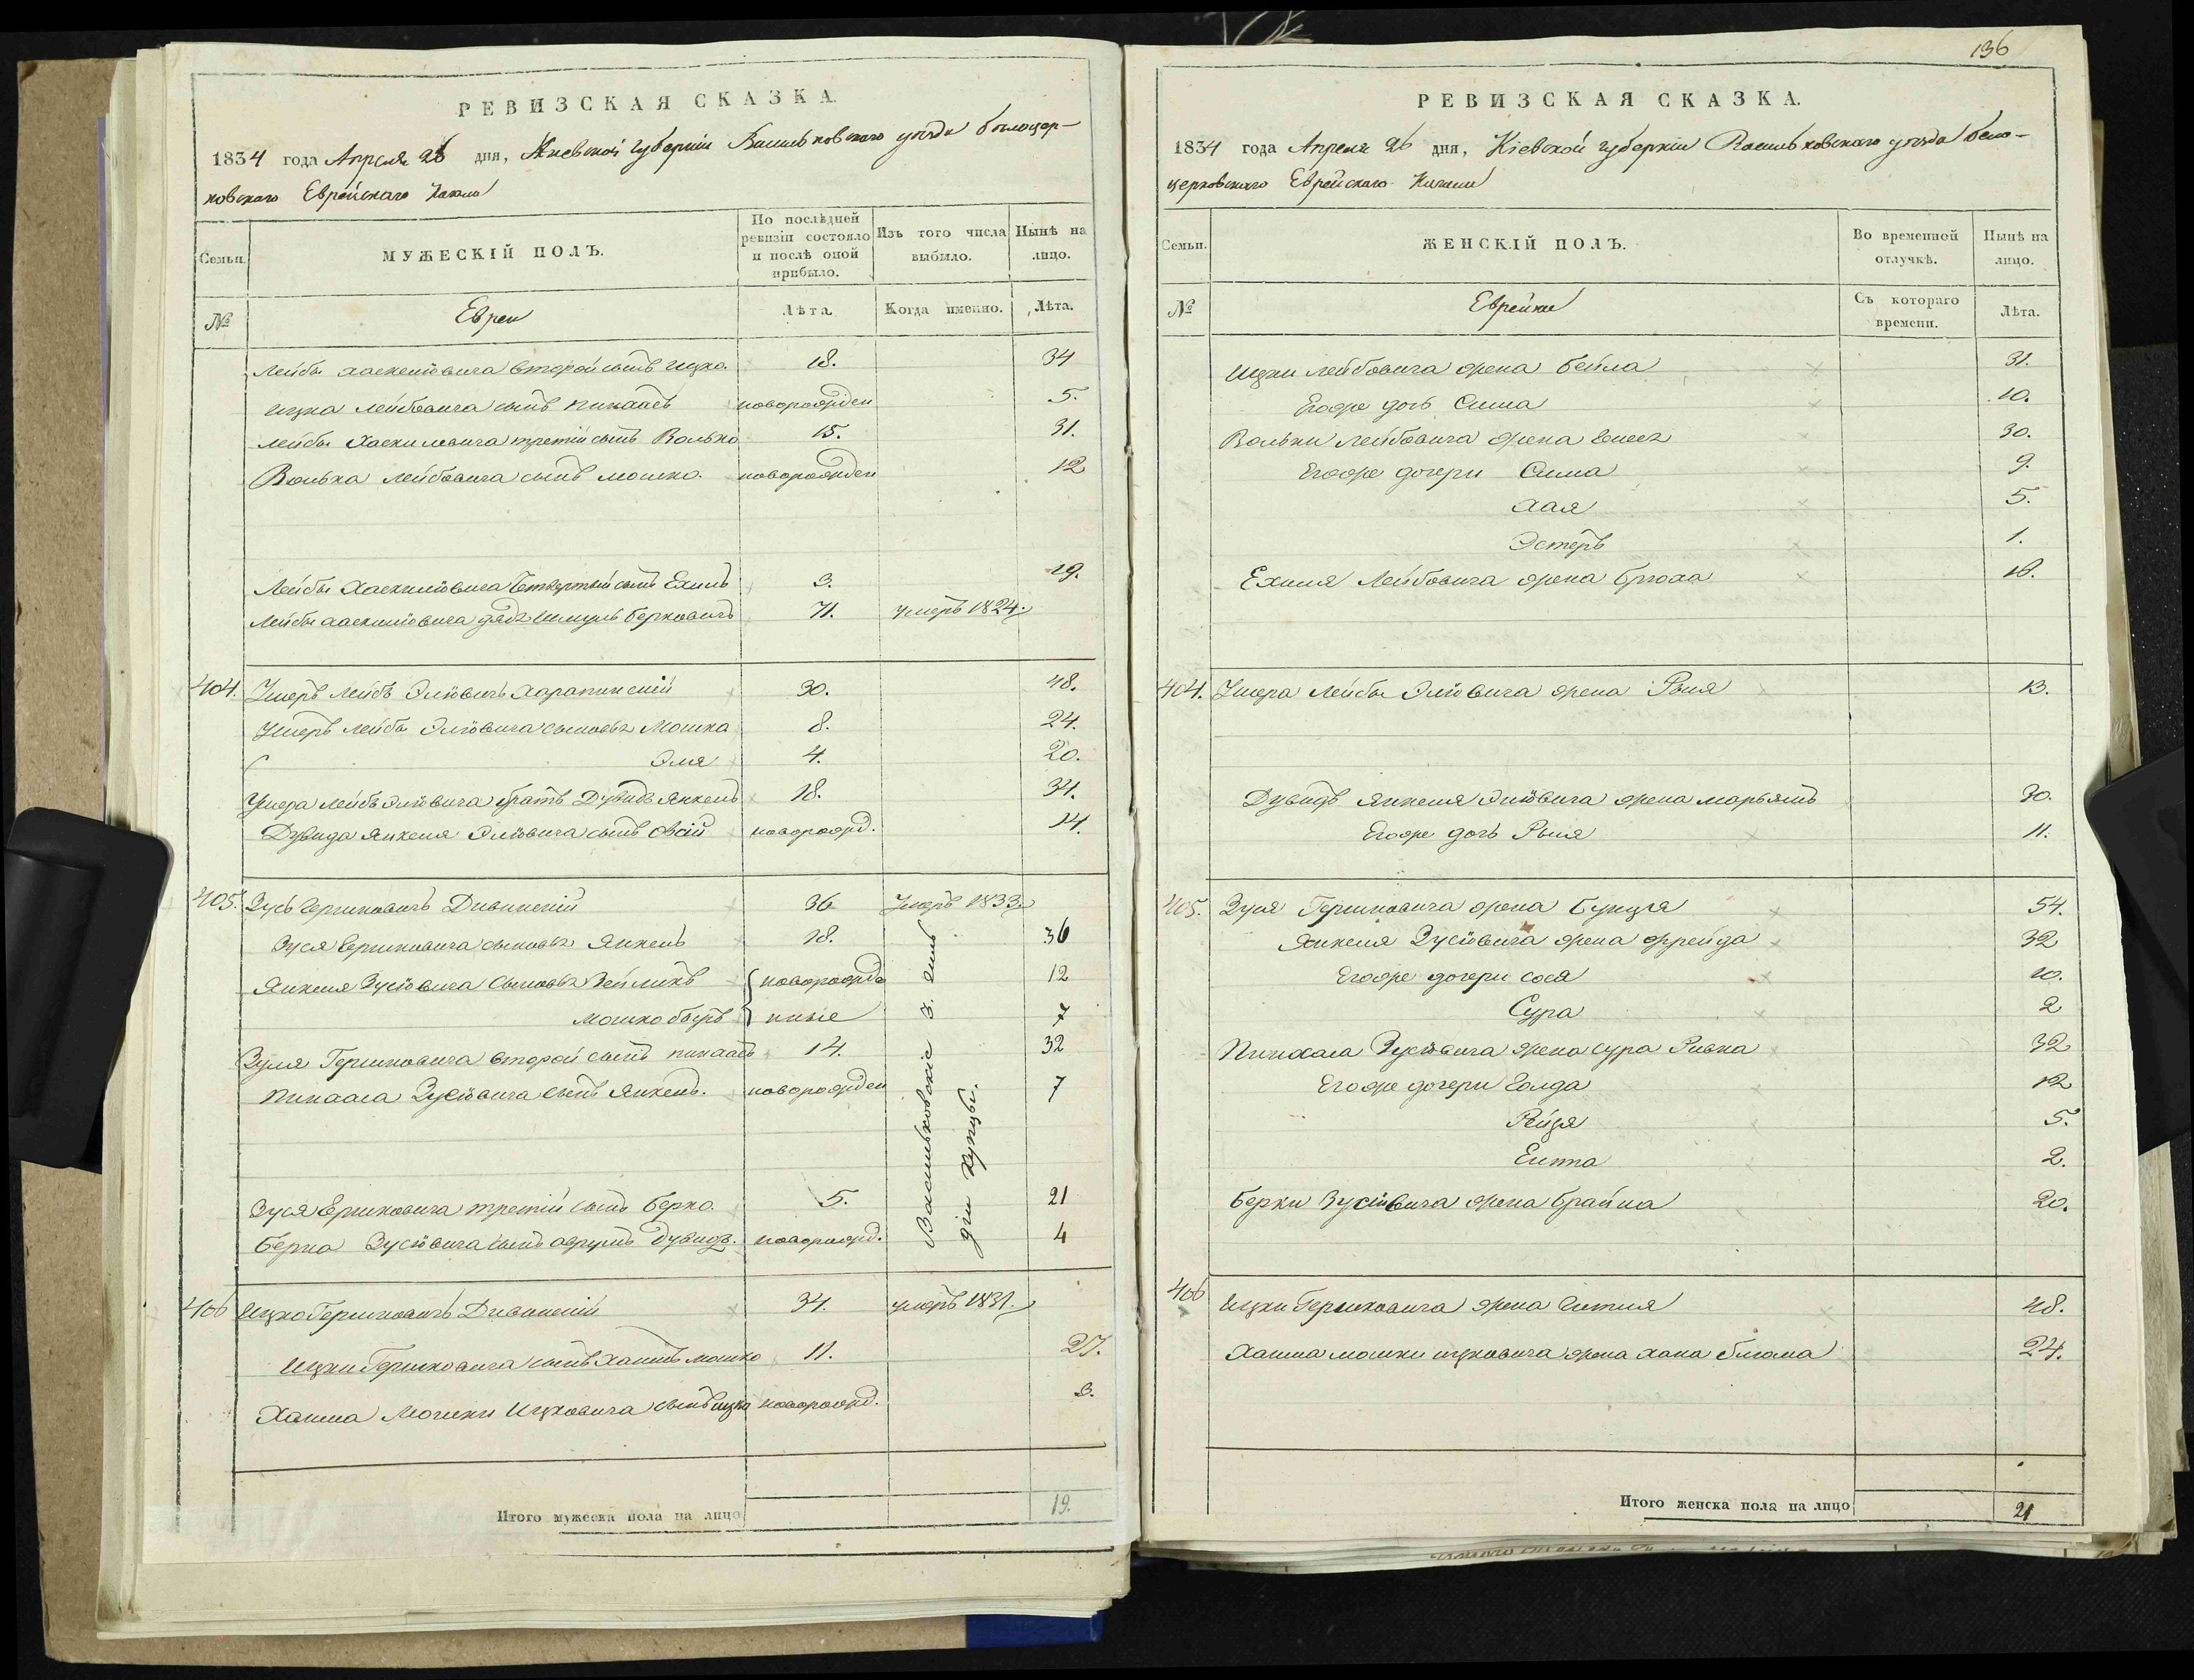 РЕВИЗСКАЯ СКАЗКА.
1834 года Апреля 26 дня, Киевской губернии Васильковского уезда белоцер-
ковскаго Еврейскаго Кагала
Семьи.
МУЖЕСКІЙ ПОЛЪ.
По послѣдней ревизіи состояло и послѣ оной прибыло.
Изъ того числа выбыло.
Нынѣ на лицо.
№
Евреи
Лѣта.
Когда именно.
Лѣта.
Лейбы Хаскелiовича второй сынъ Ицко. 18. 34
Ицка Лейбовича сынъ Пинхасъ новорожден 5.
Лейбы Хаскилiовича третiй сынъ Волько 15. 31.
Волька Лейбовича сынъ Мошко. новорожден 12
Лейбы Хаскилiовича Четвертый сынъ Ехиль 3. 19.
Лейбы Хаскилiовича дядя Шмуль Берковичъ 71. умеръ 1824.
404. Ушеръ Лейбъ Элiовичъ 30. 48.
Ушеръ Лейба Элiовича сыновья Мошка 8. 24.
Эля 4. 20.
Ушера Лейбъ Элiовича братъ Дувидъ Янкель 18. 34.
Дувида Янкеля Элiовича сынъ Овсiй новорожд. 14.
405. Зусь Гершковичъ Дивинскiй 36 Умеръ 1833.
Зуся Гершковича сыновья Янкель 18. 36
Янкеля Зусiовича Сыновья Зейликъ новорожде 12
Мошко Беръ нные 7
Зуся Гершковича второй сынъ Пинхасъ 14. 32
Пинхаса Зусiовича сынъ Янкель. новорожден 7
Зуся Гершковича третiй сынъ Берко. 5. 21
Берка Зусiовича сынъ Аврумъ Дувидъ. новорожд. 4
Васильковскiе 3.
купцы.
406 Ицко Гершковичъ Дивинскiй 34. умеръ 1831.
Ицки Гершковича сынъ Хаимъ Мошко 11. 27.
Хаима Мошки Ицковича сынъ Ицко новорожд. 3.
Итого мужеска пола на лицо 19.
136
РЕВИЗСКАЯ СКАЗКА.
1834 года Апреля 26 дня, Кіевской губерніи Васильковскаго уезда Бело-
церковскаго Еврейскаго Кагала
Семьи.
ЖЕНСКІЙ ПОЛЪ.
Во временной отлучкѣ.
Нынѣ на лицо.
№
Еврейки
Съ котораго времени.
Лѣта.
Ицки Лейбовича жена Бейла 31.
Егоже дочь Сима 10.
Вольки Лейбовича жена 30.
Егоже дочери Сима 9.
Хая 5.
Эстеръ 1.
Ехиля Лейбовича жена Брюха 18.
404. Ушера Лейбы Элiовича жена Рыся
Дувидъ Янкеля Элiовича жена Марьямъ 30.
Егоже дочь Рыся 11.
405. Зуся Гершковича жена Бунця 54.
Янкеля Зусiовича жена Фрейда 32
Егоже дочери Сося 10.
Сура 2
Пинхаса Зусiовича жена Сура Ривка 32
Егоже дочери Голда 12
Рейзя 5.
Ента 2.
Берки Зусiовича жена Брайна 20.
406 Ицки Гершковича жена Гитля 48.
Хаима Мошки Ицковича жена Хана Блюма 24.
Итого женска пола на лицо 21